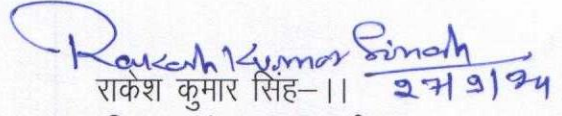 Rakesh Kumar Singh
राकेश कुमार सिंह–।।